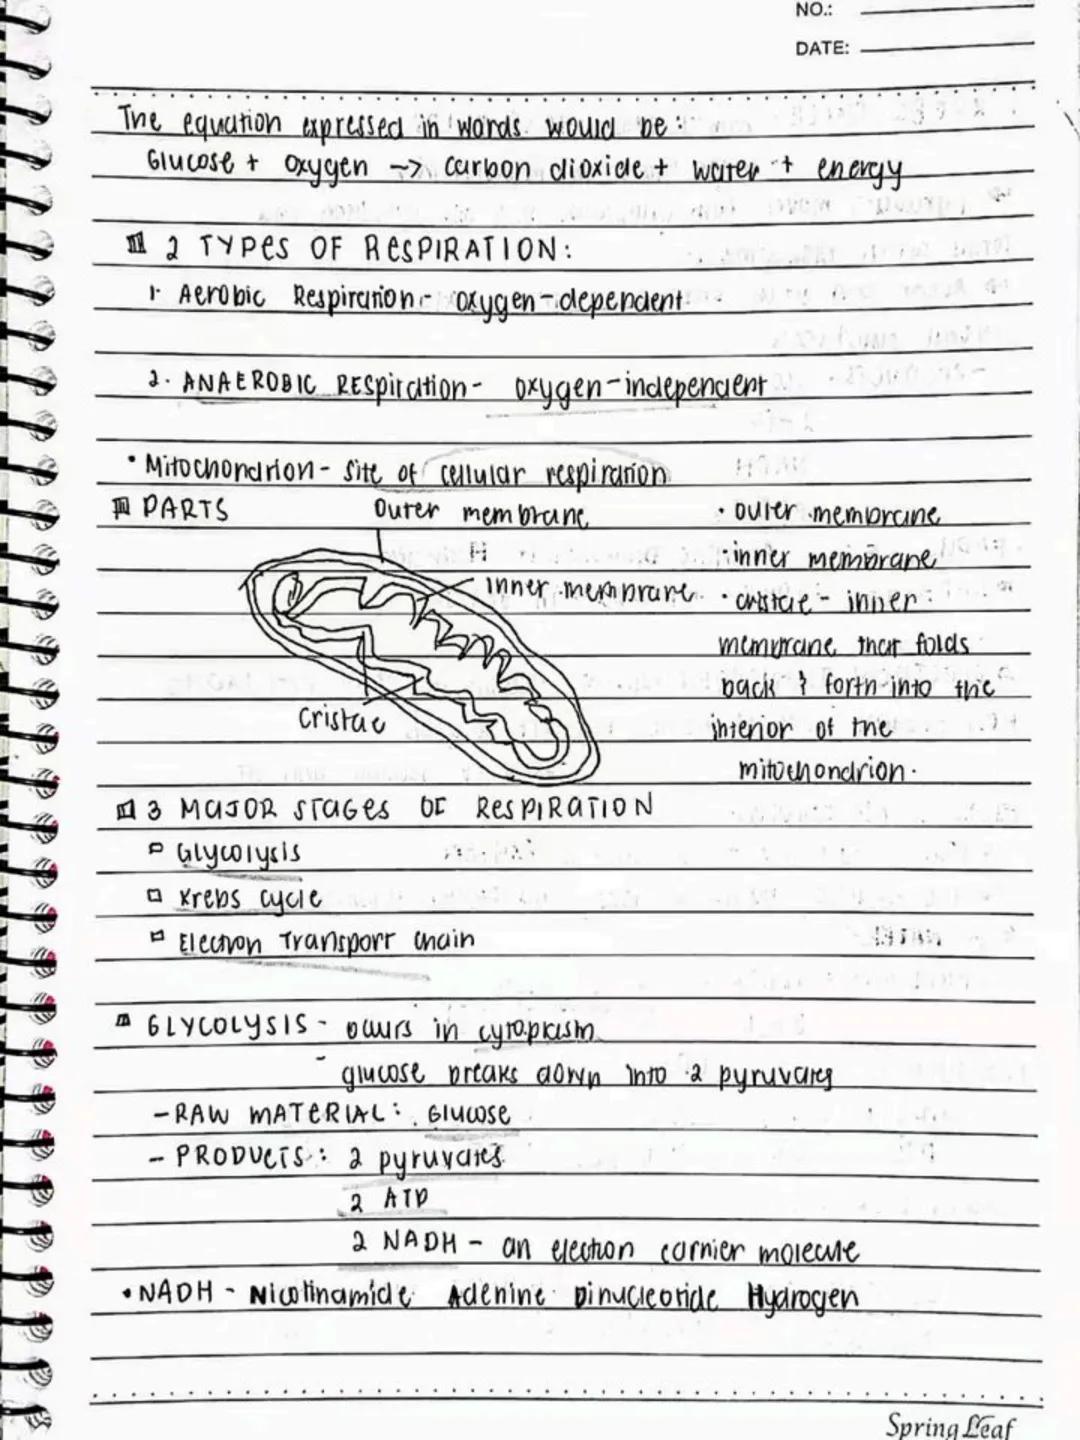 NO.:
DATE:
The equation expressed in words would be:
Glucose + oxygen -> carbon dioxide + water + energy
2 TYPES OF RESPIRATION:
1. Aerobic Respiration - oxygen-dependent
2. ANAEROBIC RESpiration - oxygen-independent
• Mitochondrion - site of cellular respiration
PARTS
Outer membrane
inner membrane
Cristae
• outer membrane
• inner membrane
• cristae - inner
membrane that folds
back & forth into the
interior of the
mitochondrion.
3 MAJOR STAGES OF RESPIRATION
Glycolysis
Krebs cycle
Electron Transport chain
GLYCOLYSIS - occurs in cytoplasm
glucose breaks down into 2 pyruvates
- RAW MATERIAL: Glucose
- PRODUCTS: 2 pyruvates
2 ATP
2 NADH - an election carrier molecule
• NADH - Nicotinamide Adenine Dinucleotide Hydrogen
Spring Leaf